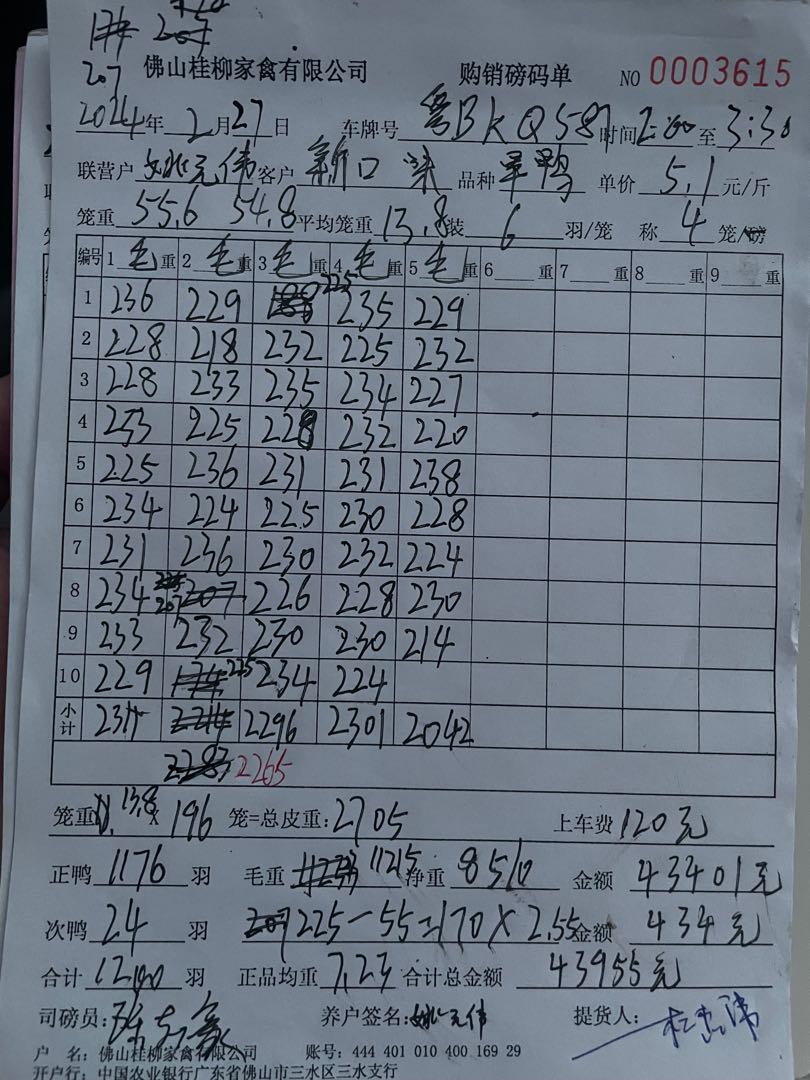 207
佛山桂柳家禽有限公司 购销磅码单 NO 0003615
2024年 2月27日 车牌号 粤BKQ587 时间2:00至3:30
联营户 姚元伟 客户 新口 品种 旱鸭 单价 5.1 元/斤
笼重 55.6 54.8 平均笼重 13.8 装 6 羽/笼 称 4 笼/磅
编号 1 毛 重 2 毛 重 3 毛 重 4 毛 重 5 毛 重 6 重 7 重 8 重 9 重
1 236 229 225 235 229
2 228 218 232 225 232
3 228 233 235 234 227
4 233 225 228 232 220
5 225 236 231 231 238
6 234 224 225 230 228
7 231 236 230 232 224
8 234 207 226 228 230
9 233 232 230 230 214
10 229 225 234 224
小计 2311 2296 2301 2042
2265
笼重 13.8 × 196 笼=总皮重: 2705 上车费 120元
正鸭 1176 羽 毛重 11215 净重 8510 金额 43401元
次鸭 24 羽 225-55=170×2.55 金额 434元
合计 1200 羽 正品均重 7.23 合计总金额 43955元
司磅员: 养户签名: 姚元伟 提货人:
户 名: 佛山桂柳家禽有限公司 账号: 444 401 010 400 169 29
开户行: 中国农业银行广东省佛山市三水区三水支行